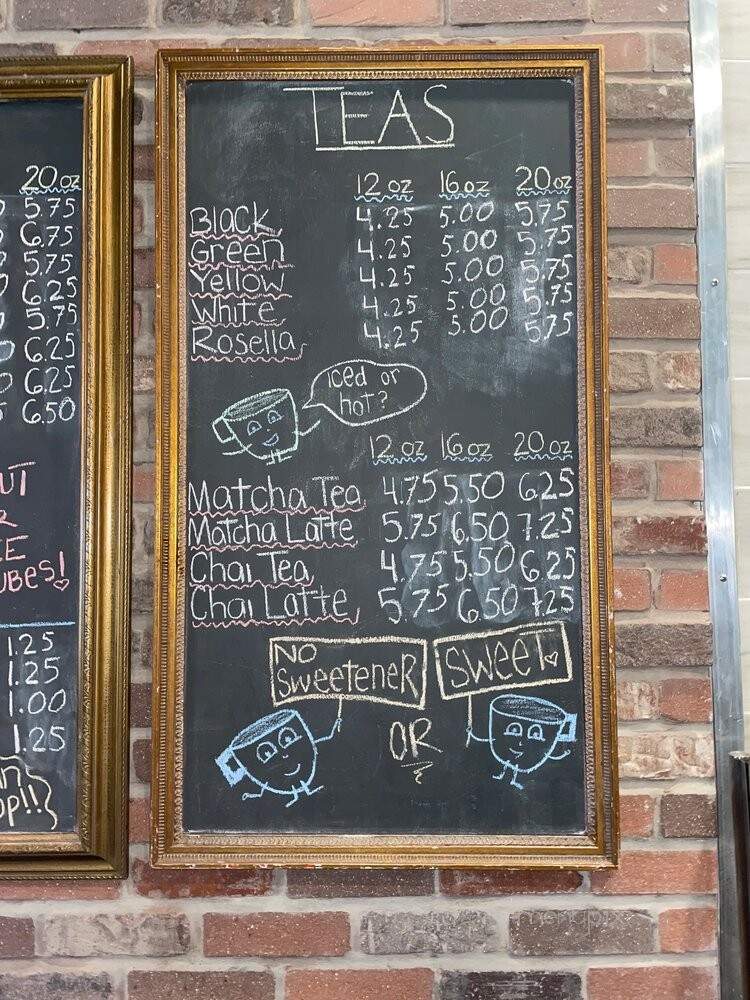 TEAS
12 oz 16 oz 20 oz
Black 4.25 5.00 5.75
Green 4.25 5.00 5.75
Yellow 4.25 5.00 5.75
White 4.25 5.00 5.75
Rosella 4.25 5.00 5.75
iced or
hot?
12 oz 16 oz 20 oz
Matcha Tea 4.75 5.50 6.25
Matcha Latte 5.75 6.50 7.25
Chai Tea 4.75 5.50 6.25
Chai Latte 5.75 6.50 7.25
NO
Sweetener
SWEET
OR
20 oz
5.75
6.75
5.75
6.25
5.75
6.25
6.25
6.50
1.25
1.25
1.00
1.25